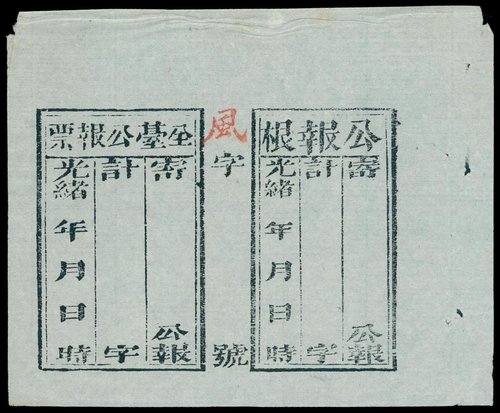 公報根
寄 公報
計 字
光緒 年月日時
風字 號
坐臺公報票
寄 公報
計 字
光緒 年月日時